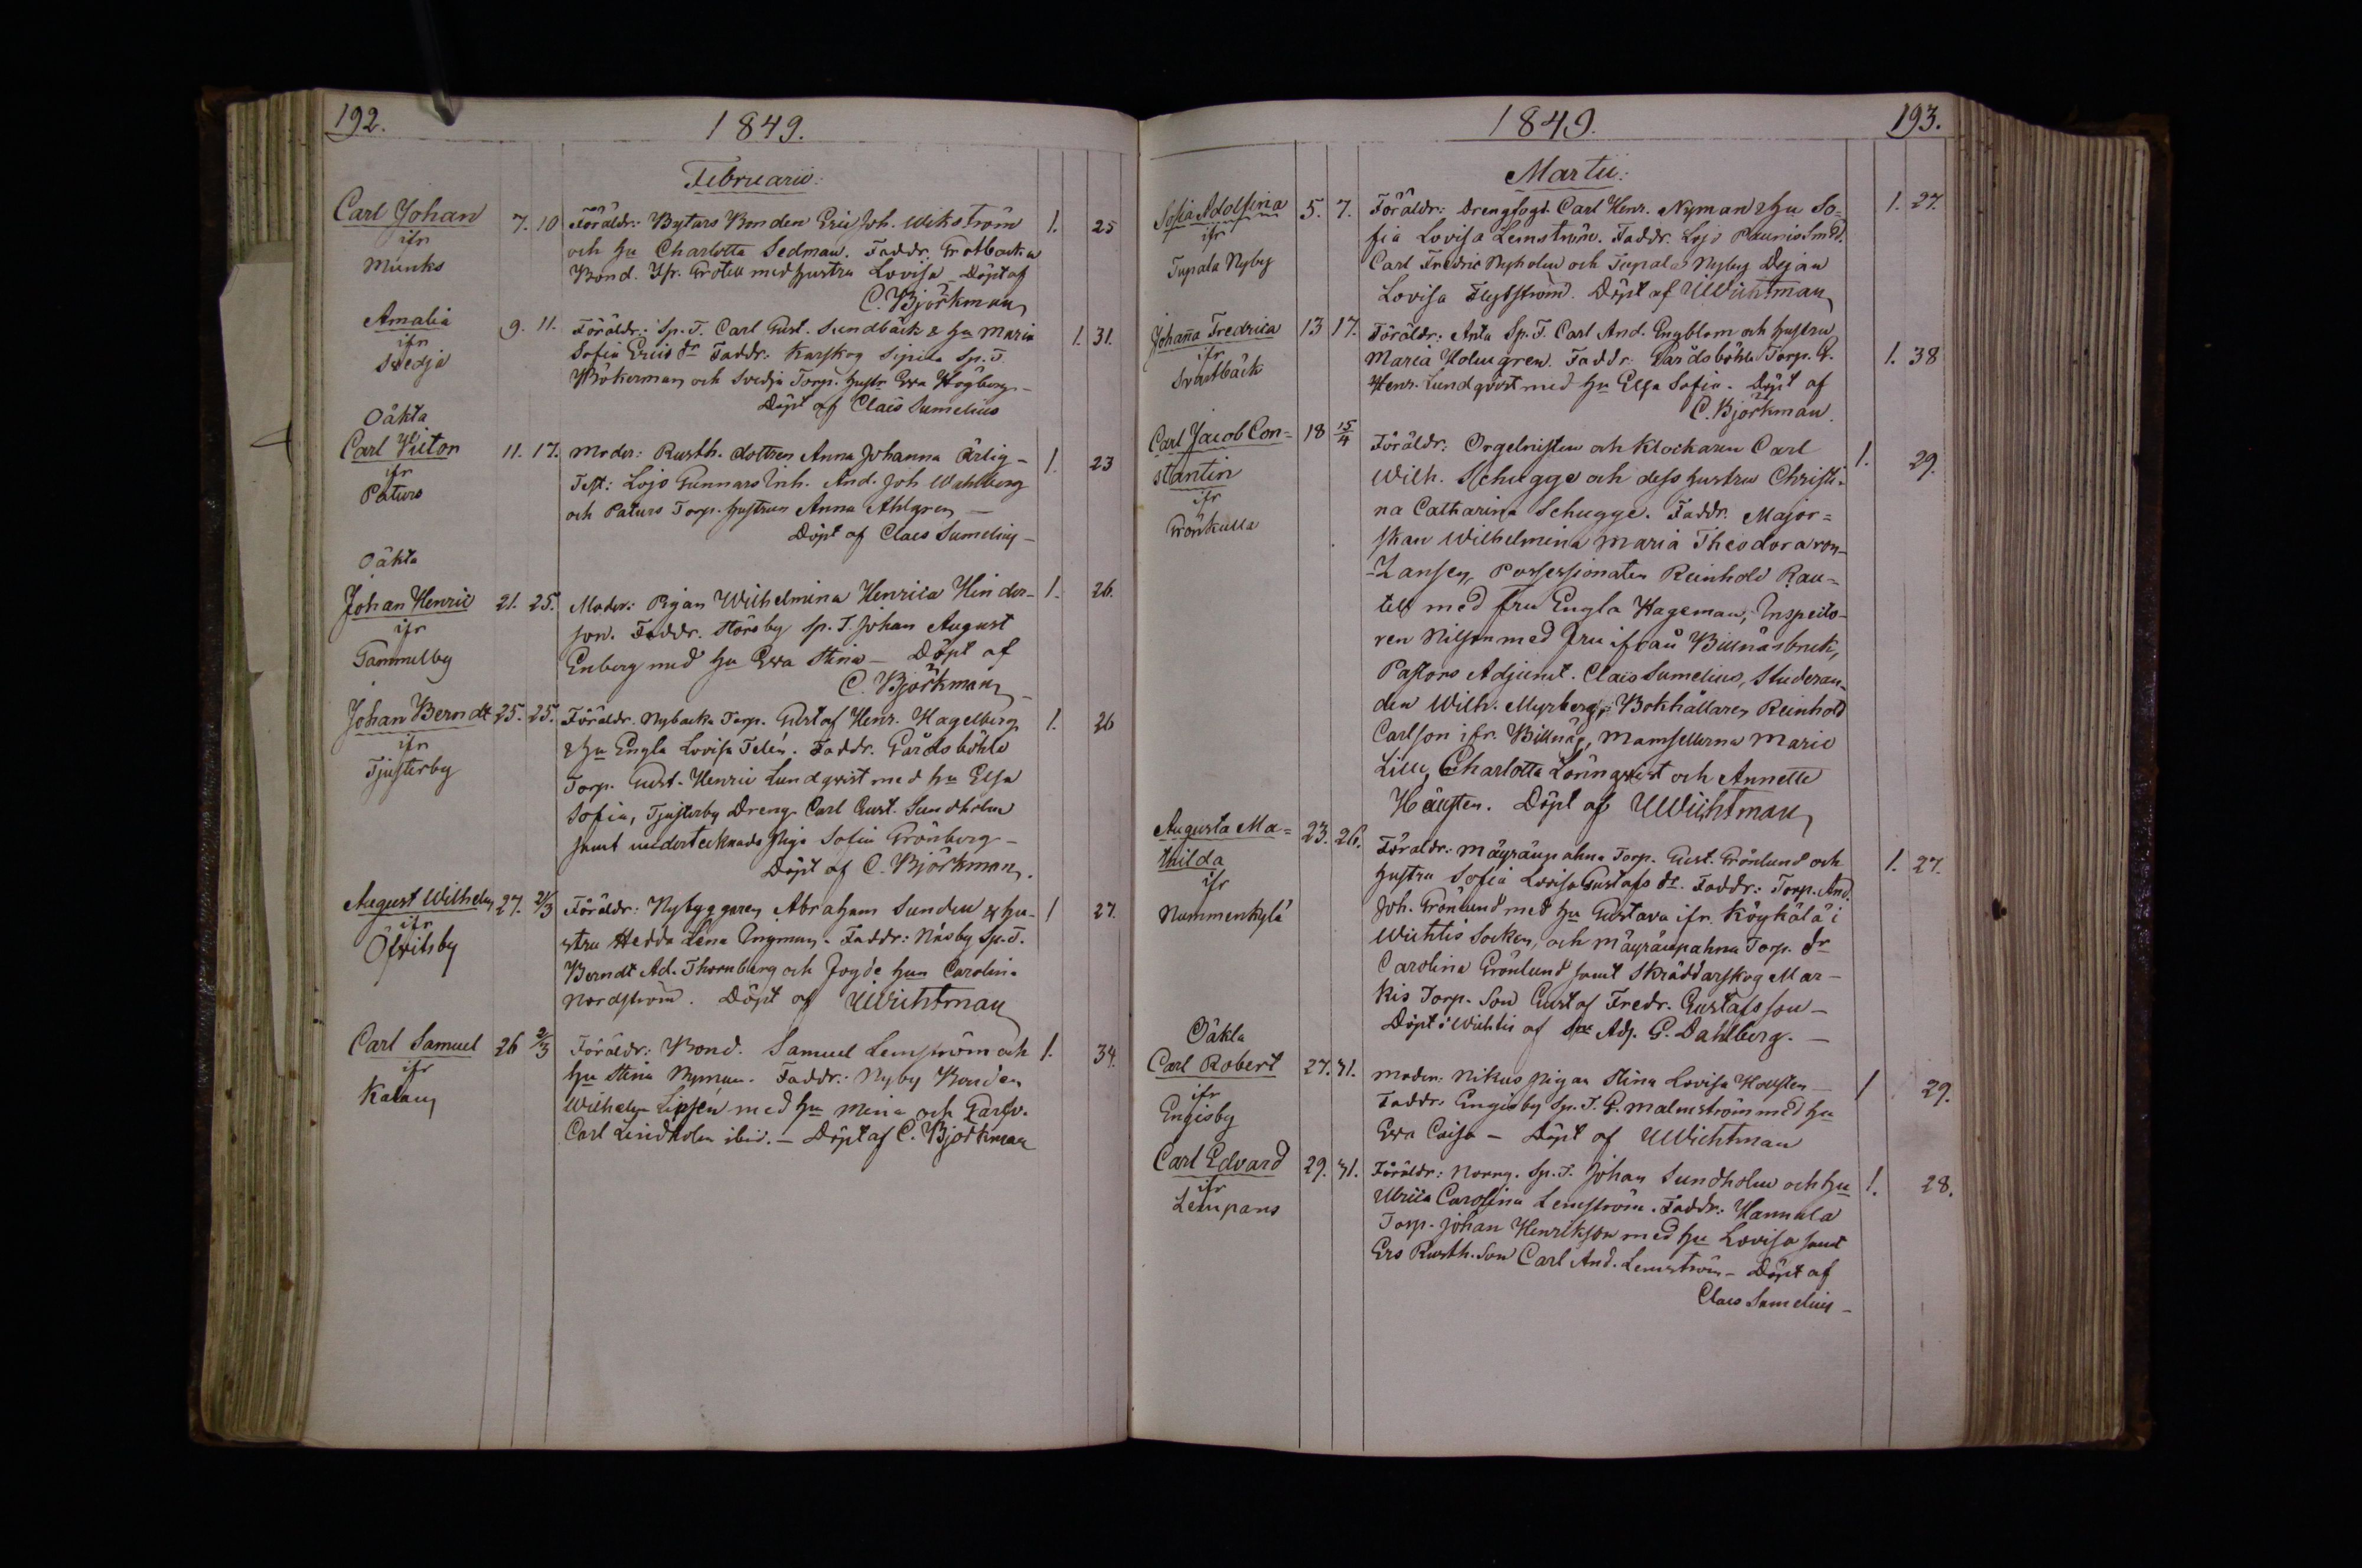 192.
1849.
Februarii:
Carl Johan
ifr
Munks
7. 10
Föräldr: Bytars Bonden Eric Joh. Wikström
och hu Charlotta Sedman. Faddr. Grotbacka
Bond. Ifr. Grotell med hustru Lovisa. Döpt af
C. Björkman
1. 25
Amalia
ifr
Svedja
9. 11.
Föräldr: Sp. T. Carl Gust. Sundbäck & hu Maria
Sofia Erics dr Faddr: Karskog Sp. T.
Bökerman och Svedja Torp. hustr Eva Högberg –
Döpt af Claes Sumelius
1. 31.
Oäkta
Carl Victor
ifr
Paturs
11. 17.
Moder: Rusth. dottren Anna Johanna Ärlig –
Test: Lojo Gunnars Inh. And. Joh Wahlberg
och Paturs Torp. hustrun Anna Ahlgren –
Döpt af Claes Sumelius –
1. 23
Oäkta
Johan Henric
ifr
Gammelby
21. 25.
Moder: Pigan Wilhelmina Henrica Hinders-
son. Faddr. Störsby Sp. T. Johan August
Enberg med hu Eva Stina – Döpt af
C. Björkman
1. 26.
Johan Berndt
ifr
Tjusterby
25. 25.
Föräldr. Nybacka Torp. Gustaf Henr. Hagelberg
& hu Engla Lovisa Telén. Faddr. Gårdsböhle
Torp. Gust. Henric Lundqvist med hu Elsa
Sofia, Tjusterby Dreng Carl Gust. Sundholm
samt undertecknads Piga Sofia Grönberg –
Döpt af C. Björkman.
1. 26
August Wilhelm
ifr
Öfvitsby
27. 2/3
Föräldr: Nybyggaren Abraham Sunden & hu-
stru Hedda Lena Ingman. Faddr: Näsby Sp. T.
Berndt Ad. Thornberg och Fogde hun Carolina
Nordström. Döpt af UWichtman
1 27.
Carl Samuel
ifr
Katan
26 2/3
Föräldr: Bond. Samuel Lemström och
hu Stina Nyman. Faddr. Nyby Bonden
Wilhelm Lipsén med hu Mina och Garfv.
Carl Lindholm ibid. – Döpt af C. Björkman
1. 34.
1849.
193.
Martii:
Sofia Adolfina
ifr
Tupala Nyby
5. 7.
Föräldr: Drengfogd. Carl Henr. Nyman & hu So-
fia Lovisa Lemström. Faddr. Lojo Paunis Smed.
Carl Fredric Nyholm och Tupala Nyby Dejan
Lovisa Flytström. Döpt af UWichtman
1. 27.
Johana Fredrica
ifr
Svartbäck
13 17.
Föräldr: Anla Sp. T. Carl And. Engblom och hustru
Maria Holmgren. Faddr. Gårdsböhle Torp. G.
Henr. Lundqvist med hu Elsa Sofia. Döpt af
C. Björkman.
1. 38
Carl Jacob Con=
stantin
ifr
Grönkulla
18 15/4
Föräldr: Orgelnisten och Klockaren Carl
Wilh. Schugge och dess hustru Christi-
na Catharina Schugge. Faddr. Major=
skan Wilhelmina Maria Theodora von
Zansen, Possessionaten Reinhold Rau=
tell med fru Engla Hageman, Inspecto-
ren Nilson med fru ifrån Billnäsbruk,
Pastors Adjunct. Claes Sumelius, Studeran-
den Wilh. Myrberg, Bokhållaren Reinhold
Carlson ifr. Billnäs, Mamsellerna Marie
Lille, Charlotta Lönnqvist och Annette
Häusten. Döpt af UWichtman
1. 29.
Augusta Ma=
thilda
ifr
Nummenkylä
23. 26.
Föräldr: Mäyräupahna Torp. Gust. Grönlund och
hustru Sofia Lovisa Gustafs dr. Faddr: Torp. And.
Joh. Grönlund med hu Gustava ifr. Köykälä i
Wichtis Socken, och Mäyräupahna Torp. dr
Carolina Grönlund samt Skräddarskog Mar-
kis Torp. Son Gustaf Fredr. Gustafsson –
Döpt i Wichtis af Adj. G. Dahlberg. –
1. 27.
Oäkta
Carl Robert
ifr
Engisby
27. 31.
Moder: Nikus Pigan Stina Lovisa Hollsten –
Faddr. Engisby Sp. T. G. Malmström med hu
Eva Caisa – Döpt af UWichtman
1 29.
Carl Edvard
ifr
Lempans
29. 31.
Föräldr: Norrg. Sp. T. Johan Sundholm och hu
Ulrica Carolina Lemström. Faddr: Hannula
Torp. Johan Henrikson med hu Lovisa samt
Ers Rusth. Son Carl And. Lemström – Döpt af
Claes Sumelius –
1. 28.